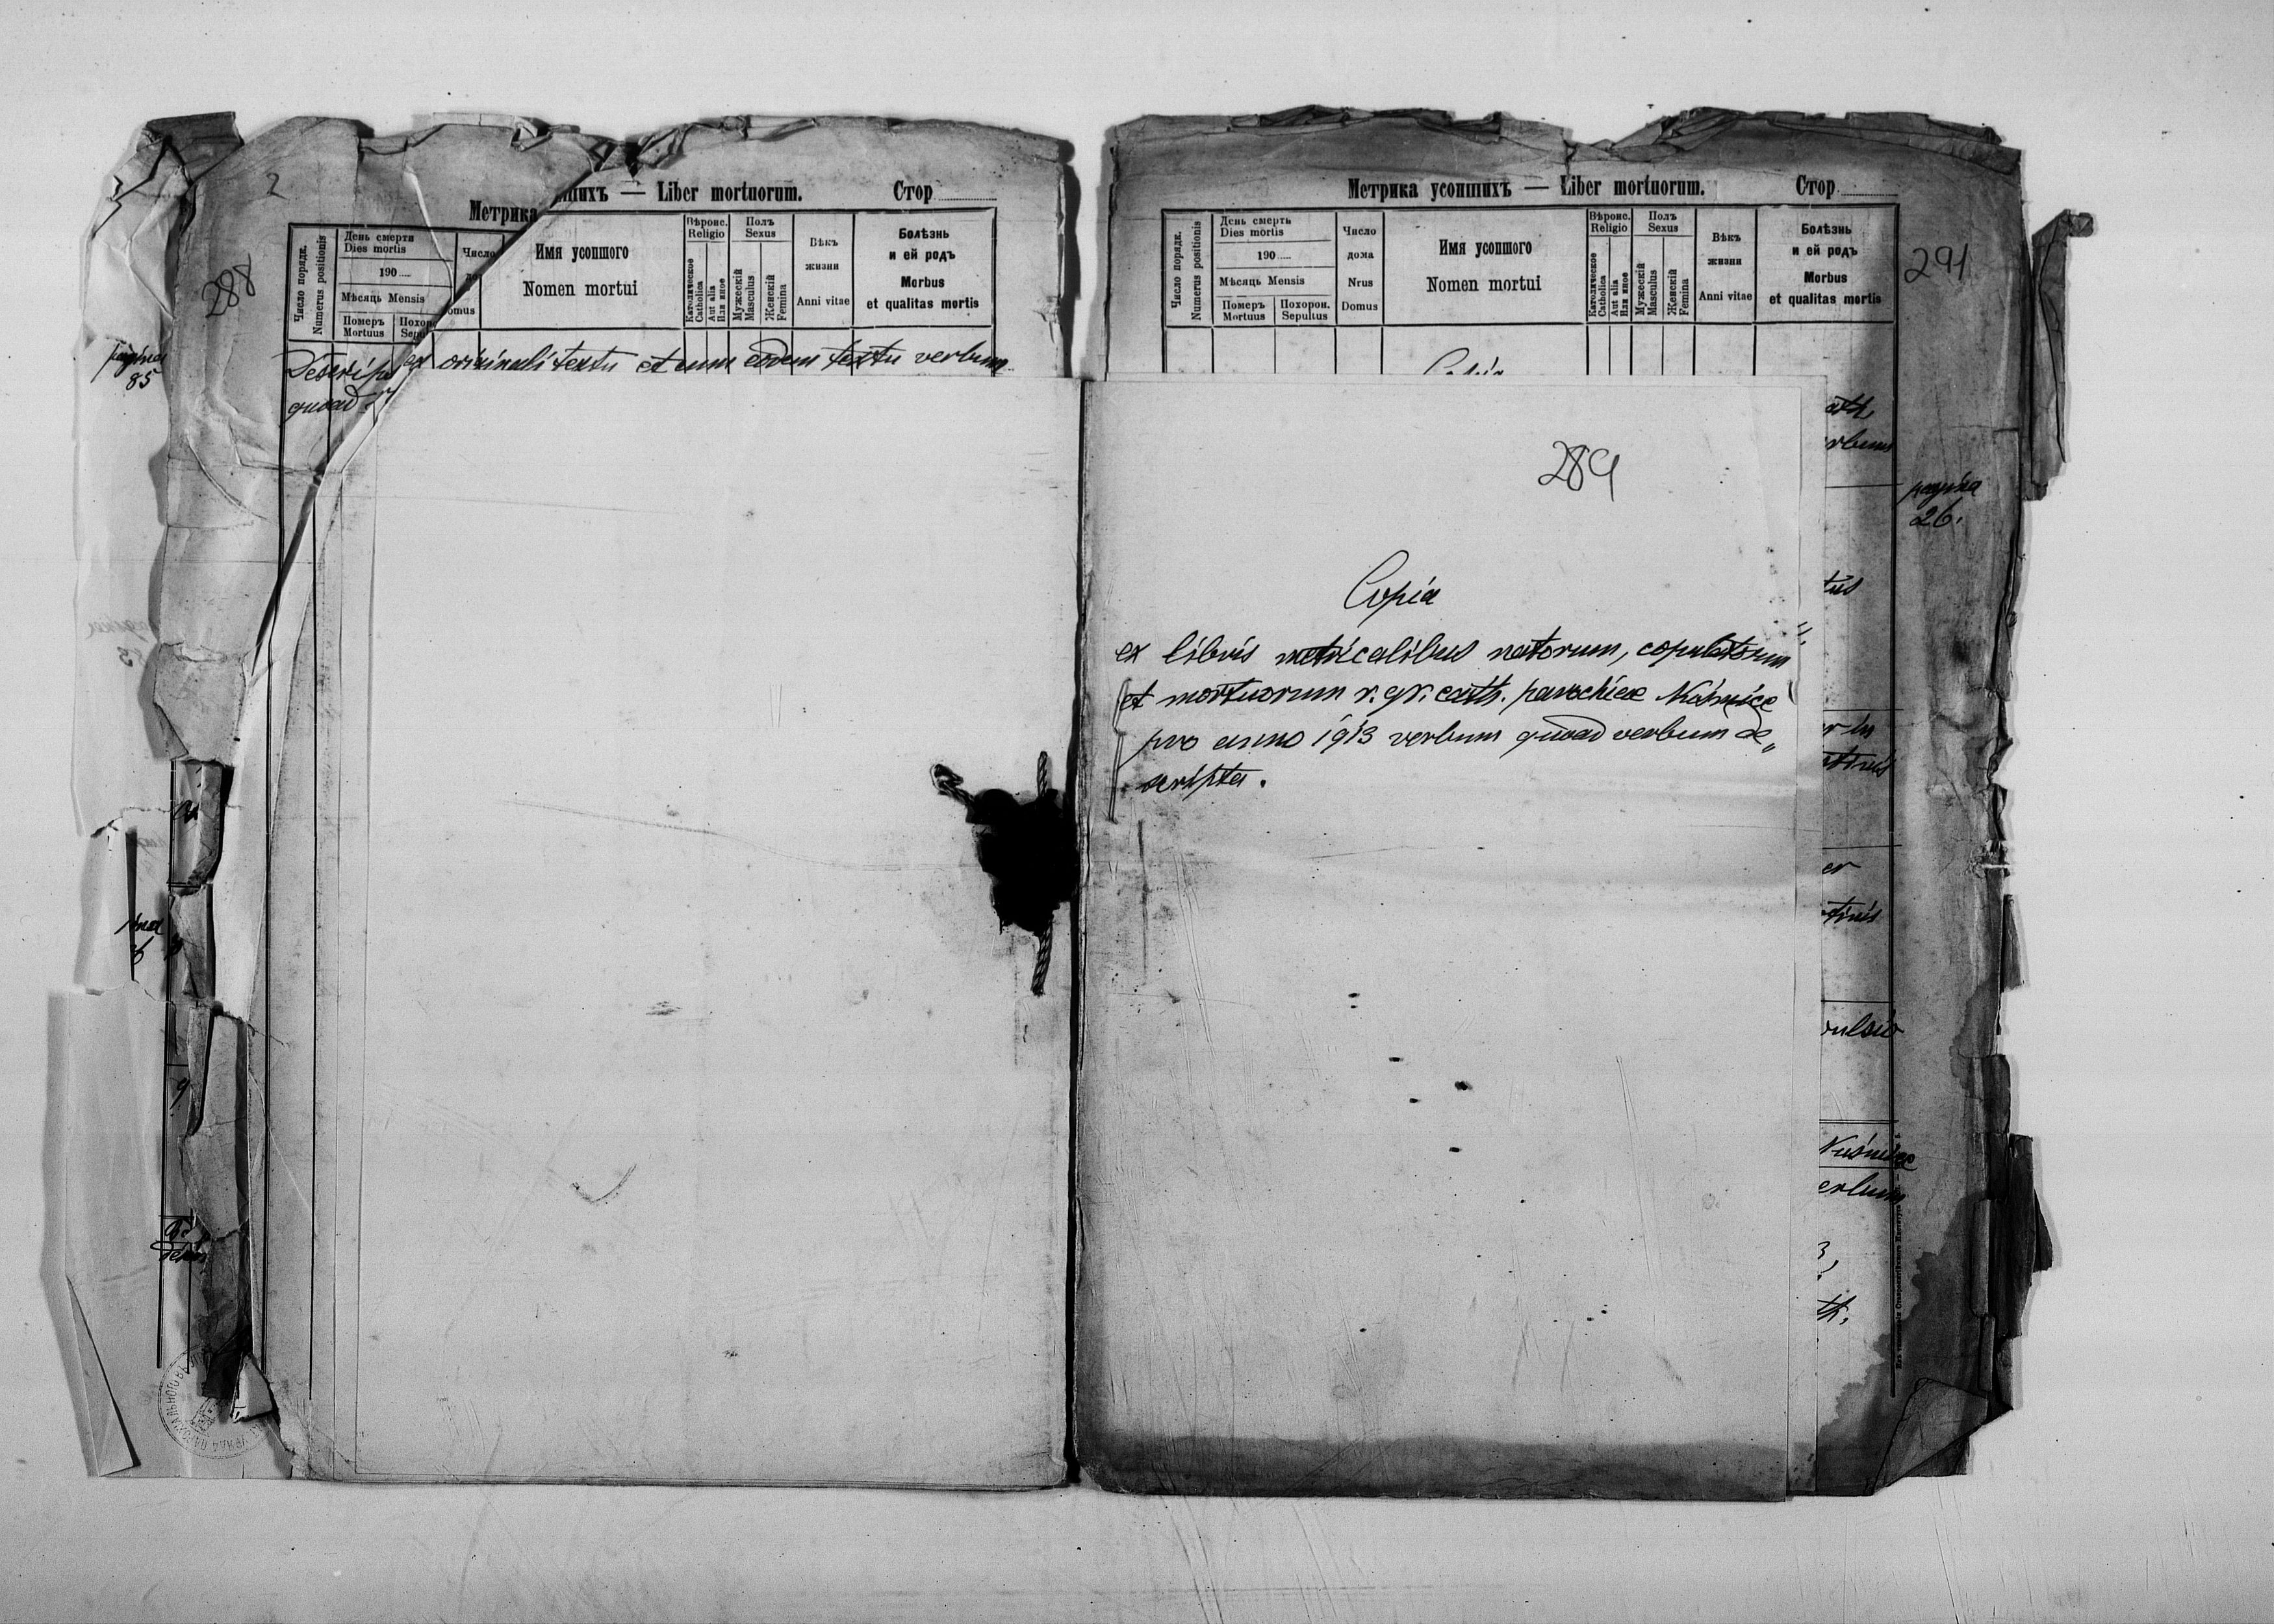 2
288
Метрика
шихъ — Liber mortuorum.
Стор
Число порядк.
Numerus positionis
День смерти
Dies mortis
190
Мѣсяць Mensis
Померъ
Mortuus
Похор
Sepu
Число
до
omus
Имя усопшого
Nomen mortui
Вѣроис.
Religio
Католическое
Catholica
Aut alia
Или иное
Полъ
Sexus
Мужескій
Masculus
Женскій
Femina
Вѣкъ
жизни
Anni vitae
Болѣзнь
и ей родъ
Morbus
et qualitas mortis
pagina
85
originali textu et cum eodem textu verbum
quoad
9
Метрика усопшихъ — Liber mortuorum.
Стор
Число порядк.
Numerus positionis
День смерть
Dies mortis
190
Мѣсяць Mensis
Померъ
Mortuus
Похорон.
Sepultus
Число
дома
Nrus
Domus
Имя усопшого
Nomen mortui
Вѣроис.
Religio
Католическое
Catholica
Aut alia
Или иное
Полъ
Sexus
Мужескій
Masculus
Женскій
Femina
Вѣкъ
жизни
Anni vitae
Болѣзнь
и ей родъ
Morbus
et qualitas mortis
291
Copia
289
Copia
ex libris metricalibus natorum, copulatorum
et mortuorum r. gr. cath. parochiae
pro anno 1913 verbum quoad verbum de„
scripta.
rbum
pagina
26.
tus
er
erbum
3,
th.